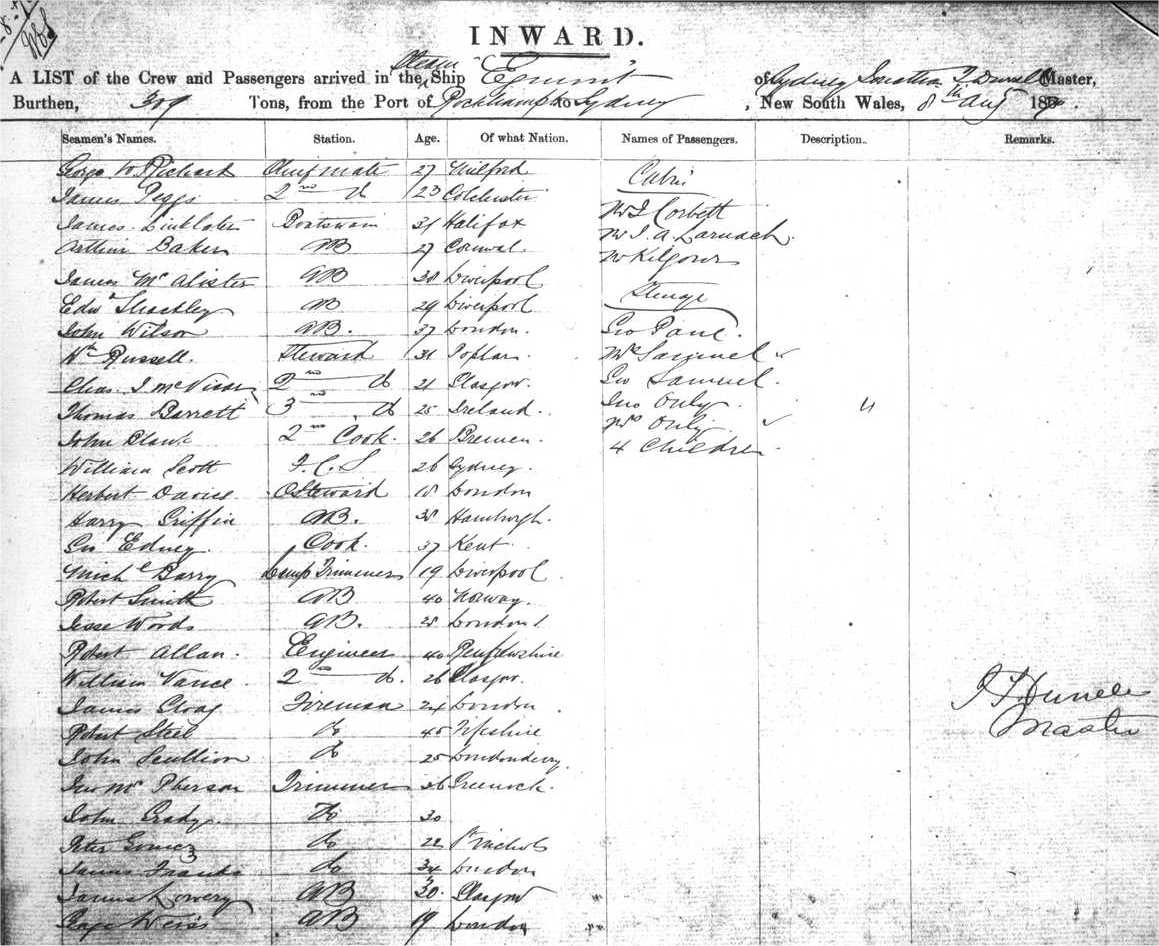 INWARD.
A LIST of the Crew and Passengers arrived in the Steam Ship of Sydney Jonathan T Master,
Burthen, 309 Tons, from the Port of Rockhampton to Sydney, New South Wales, 8th Aug 18
Seamen's Names. Station. Age. Of what Nation. Names of Passengers. Description. Remarks.
George W. Richard Chief mate 27 Milford Cabin
James Peggs 2nd do 23 Colchester
James Linklater Boatswain 31 Halifax Mr J Corbett
Arthur Baker AB 27 Cornwal. Mr J. A. Larnach.
James McAlister AB 38 Liverpool Mr Kilgour
Edwd Shackley AB 29 Liverpool Steerage
John Wilson AB. 37 London. Geo Paul.
Wm Russell. Steward 31 Poplar. Mrs Samuel
Chas. J McVicar 2nd do 21 Glasgow. Geo Samuel.
Thomas Barrett 3rd do 25 Ireland. Jno Only "
John Blank 2nd Cook. 26 Bremen. Mrs Only
4 Children
William Scott F.C.S 26 Sydney.
Herbert Davies Steward 18 London
Harry Griffin AB. 38 Hamburgh.
Geo Edney. Cook. 37 Kent
Michl Barry Lamp Trimmer 19 Liverpool
Robert Smith AB 40 Norway.
Jesse Woods AB. 25 London
Robert Allan. Engineer 40 Renfrewshire
William Vance. 2nd do. 26 Glasgow.
James Fireman 24 London
Robert Steel do 45 Fifeshire
John Scullion do 25 Londonderry
Jno McPherson Trimmer 36 Greenock.
John Grady. Do 30
Peter Gomez do 22 St
James Franks do 34 London
James Lowery AB 30 Glasgow "
George Weiss AB 19 London "
Master